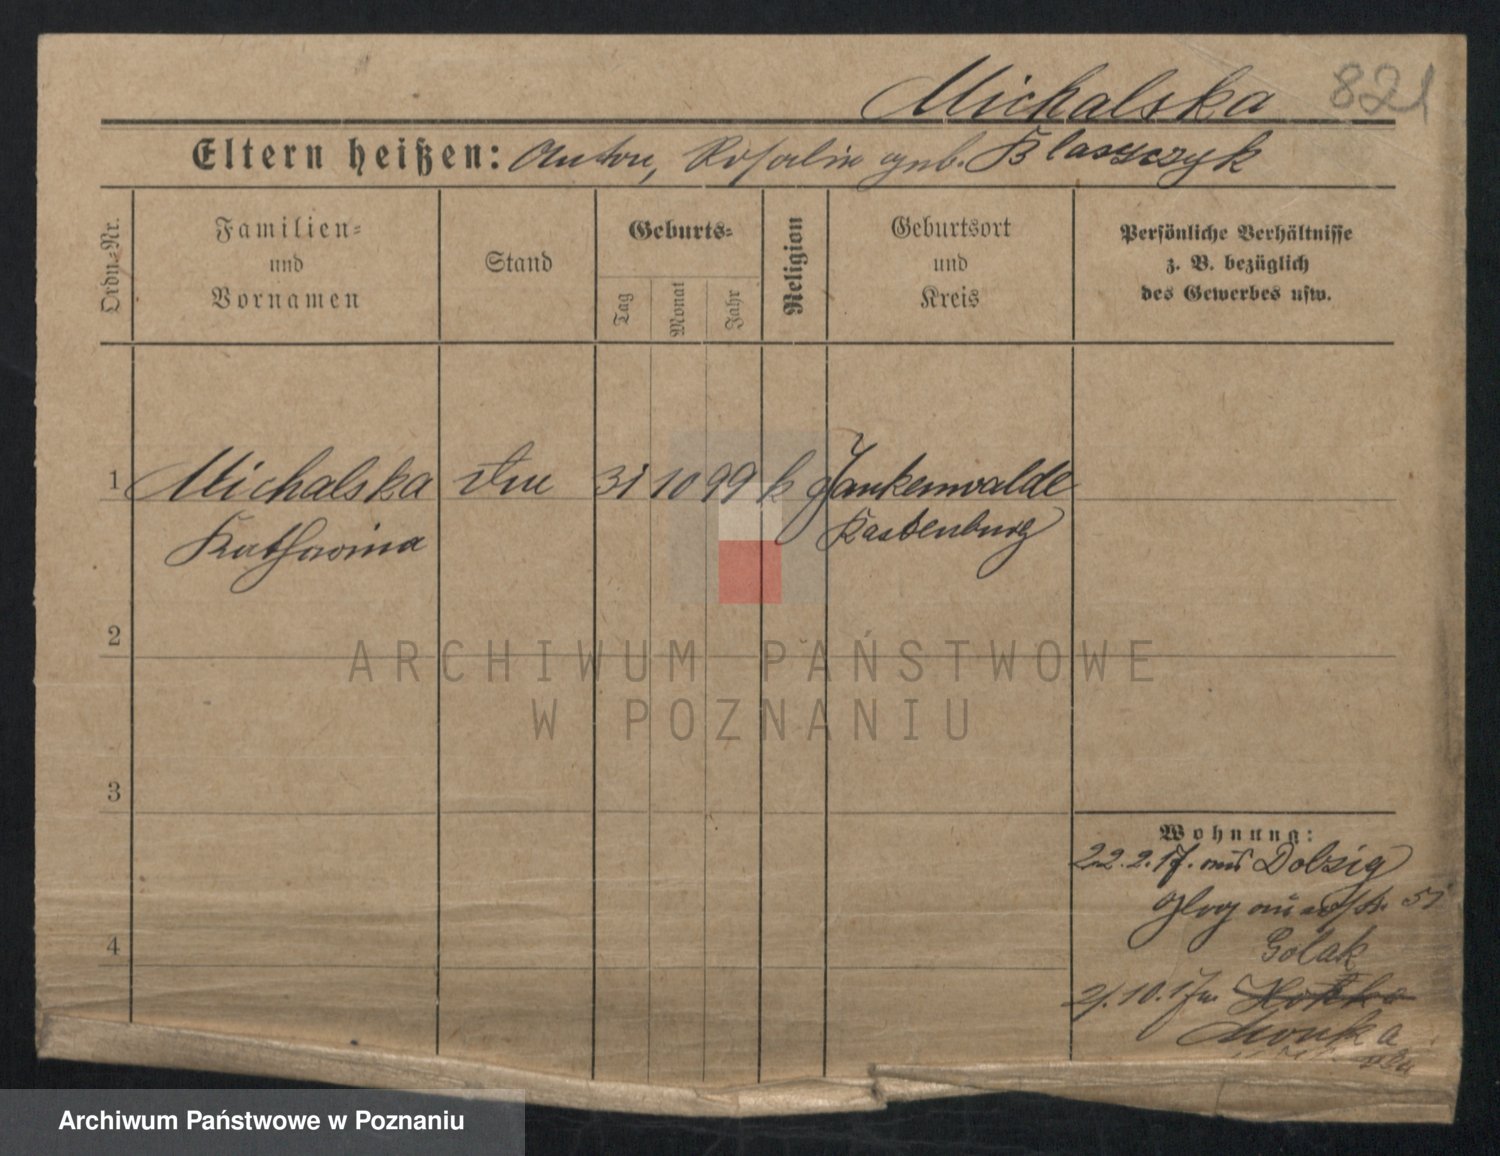 Michalska 821
Eltern heißen: Anton, Rosalie geb. Blaszczyk
Ordn.-Nr.
Familien-
und
Vornamen
Stand
Geburts-
Tag
Monat
Jahr
Religion
Geburtsort
und
Kreis
Persönliche Verhältnisse
z. B. bezüglich
des Gewerbes usw.
1 Michalska 31 10 99 k Jankenwalde
Katharina
2
ARCHIWUM PAŃSTWOWE
W POZNANIU
3
Wohnung:
22.2.17. aus Dolzig
Glogauerstr. 51
4 Golak
2/.10.17
Archiwum Państwowe w Poznaniu